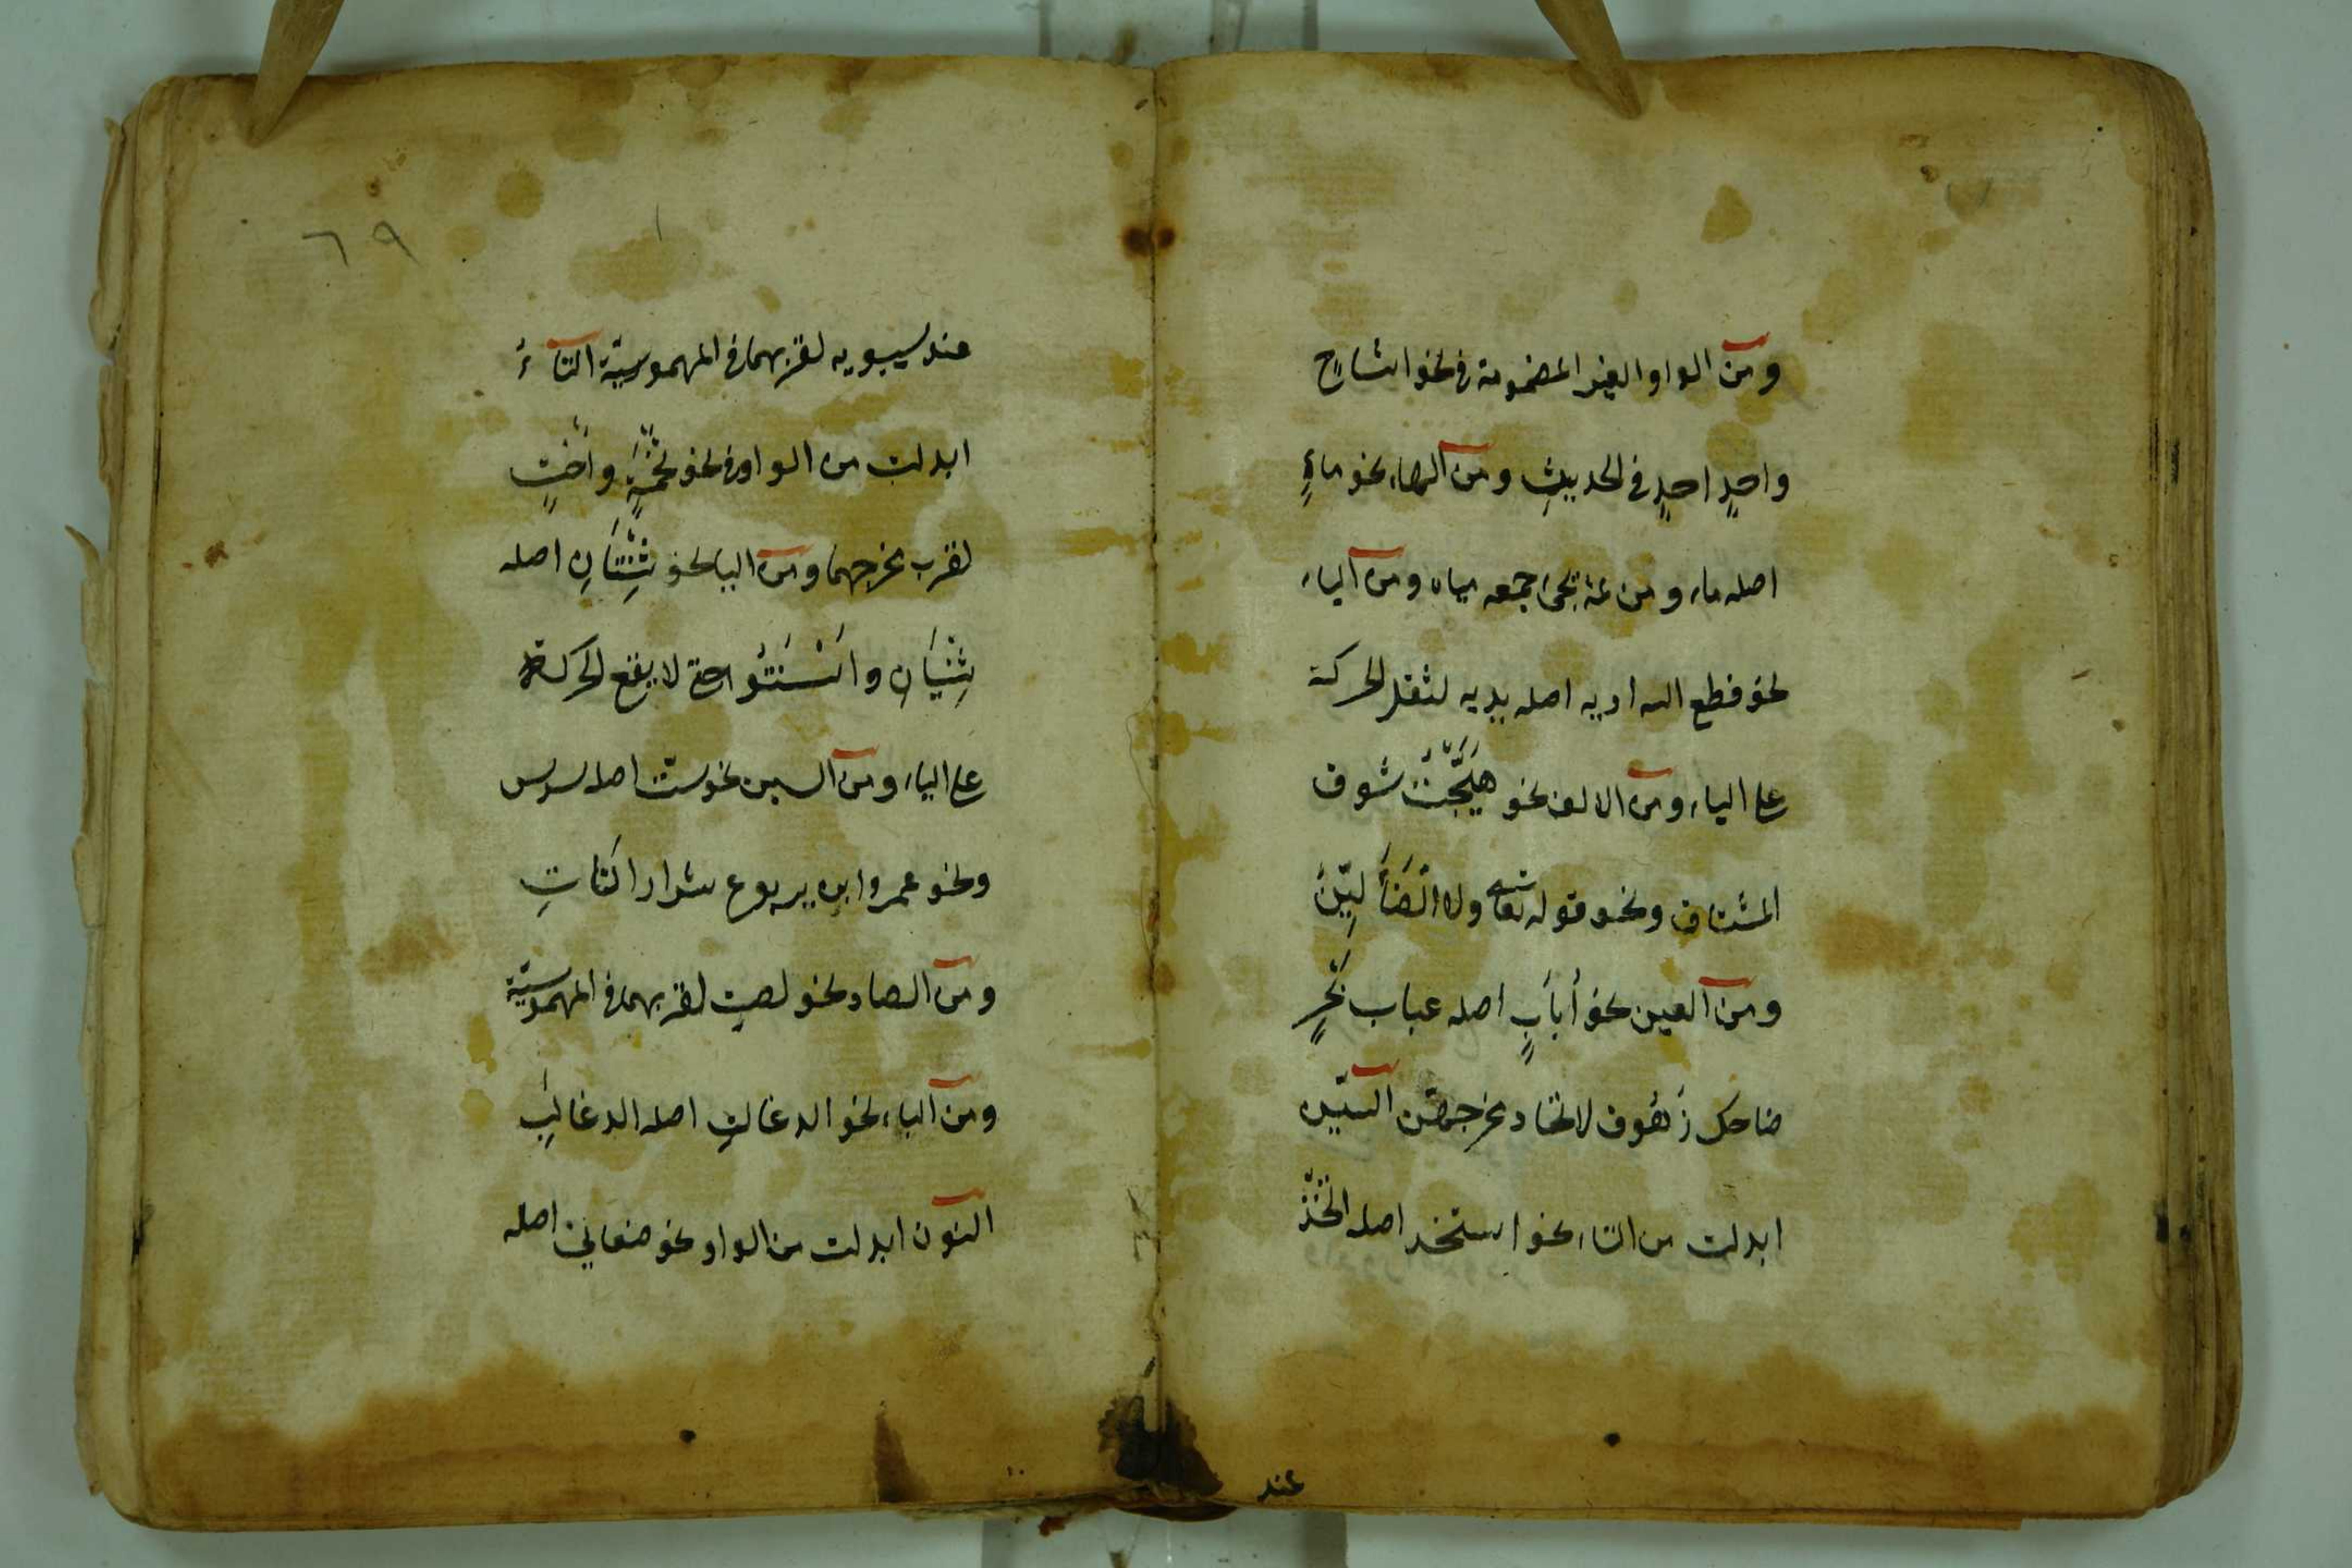 ومن الواو الغير المضمومة في نحو اشاح
واحدٍ احدٍ في الحديثِ ومن الهاء نحو ماءٍ
اصله ماه ومن ثمة يجئ جمعه مياه ومن الياء
نحو قطع الله اديه اصله يديه لثقل الحركة
على الياء ومن الالف نحو هَيَّجْتُ شوق
المشتاق ونحو قوله تعالى ولا الضَأَلِيّنَ
ومن العين نحو أُبَابٍ اصله عباب بَحْرٍ
ضاحك زَهُوق لاتحاد مخرجهن السين
ابدلت من التاء نحو استخذ اصله اتَّخَذَ
عند
٦٩
عند سيبويه لقربهما في المهموسيّة التاءُ
ابدلت من الواو في نحو تُخَمَةٍ واُخْتٍ
لقرب مخرجهما ومن اليا نحو ثِنْتَانِ اصله
ثِنْيَانِ واَسْنَتُوا حتى لا يقع الحركة
على الياء ومن السين نحو ستّ اصله سدس
ونحو عمرو ابن يربوع شرار النَاتِ
ومن الصاد نحو لصتٍ لقربهما في المهموسيّة
ومن الباء نحو الدعالتِ اصله الدعالبَِ
النون ابدلت من الواو نحو صنعانيّ اصله